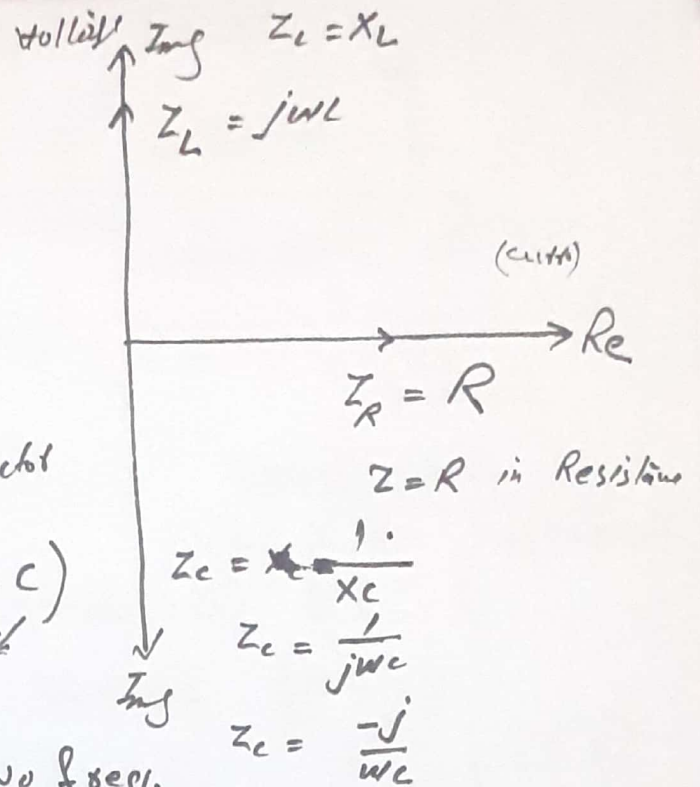 Img ZL = XL
ZL = jwL
Re
ZR = R
ctor
Z=R in Resistive
C)
Zc = 1
Xc
Zc = 1
jwc
Img
Zc = -j
wc